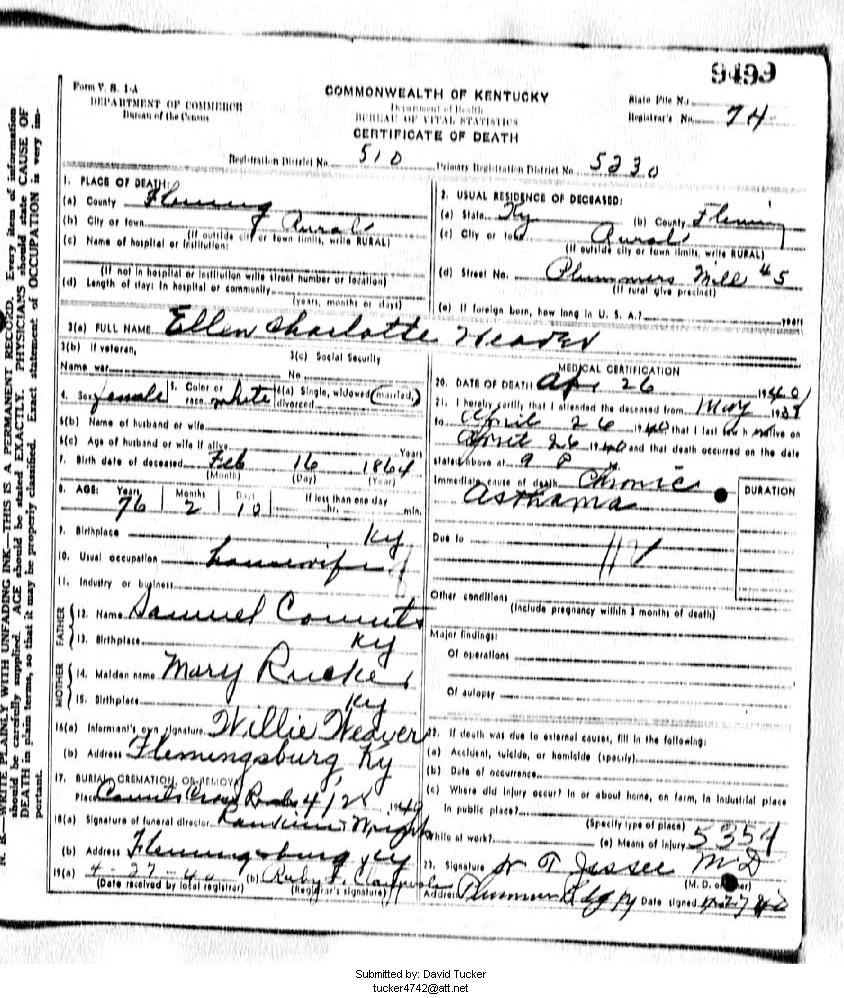 9499
Form V. S. 1-A
DEPARTMENT OF COMMERCE
Bureau of the Census
COMMONWEALTH OF KENTUCKY
Department of Health
BUREAU OF VITAL STATISTICS
CERTIFICATE OF DEATH
State File No.
Registrar's No. 74
Registration District No. 510 Primary Registration District No. 5230
1. PLACE OF DEATH:
(a) County Fleming
(b) City or town Rural
(If outside city or town limits, write RURAL)
(c) Name of hospital or institution:
(If not in hospital or institution write street number or location)
(d) Length of stay: In hospital or community
(years, months or days)
2. USUAL RESIDENCE OF DECEASED:
(a) State Ky (b) County Fleming
(c) City or town Rural
(If outside city or town limits, write RURAL)
(d) Street No. Plummers Mill #5
(If rural give precinct)
(e) If foreign born, how long in U. S. A.? years
3(a) FULL NAME Ellen Charlotte Weaver
3(b) If veteran,
Name war
3(c) Social Security
No
4. Sex female 5. Color or race white 6(a) Single, widowed, married, divorced
6(b) Name of husband or wife
6(c) Age of husband or wife if alive Years
7. Birth date of deceased Feb 16 1864
(Month) (Day) (Year)
8. AGE: Years 76 Months 2 Days 10 If less than one day hr. min.
9. Birthplace Ky
10. Usual occupation housewife
11. Industry or business
FATHER
12. Name Samuel Counts
13. Birthplace Ky
MOTHER
14. Maiden name Mary Rucker
15. Birthplace Ky
16(a) Informant's own signature Willie Weaver
(b) Address Flemingsburg Ky
17. BURIAL, CREMATION, OR REMOVAL
Place Counts Cross Roads 4/28 1940
18(a) Signature of funeral director
(b) Address Flemingsburg Ky
19(a) 4-27-40 (b) Ruby F.
(Date received by local registrar) (Registrar's signature)
MEDICAL CERTIFICATION
20. DATE OF DEATH Apr 26 1940
21. I hereby certify that I attended the deceased from May
to April 26 1940 that I last saw h alive on
April 26 1940 and that death occurred on the date
stated above at 9 P
Immediate cause of death Chronic
Asthama
DURATION
Due to
112
Other conditions
(Include pregnancy within 3 months of death)
Major findings:
Of operations
Of autopsy
22. If death was due to external causes, fill in the following:
(a) Accident, suicide, or homicide (specify)
(b) Date of occurrence
(c) Where did injury occur? In or about home, on farm, in industrial place
in public place?
(Specify type of place)
While at work? (e) Means of injury 5354
23. Signature W T Jessee MD
(M. D. or other)
Address Date signed 4-27-40
N. B.—WRITE PLAINLY WITH UNFADING INK—THIS IS A PERMANENT RECORD. Every item of information
should be carefully supplied. AGE should be stated EXACTLY. PHYSICIANS should state CAUSE OF
DEATH in plain terms, so that it may be properly classified. Exact statement of OCCUPATION is very im-
portant.
Submitted by: David Tucker
tucker4742@att.net